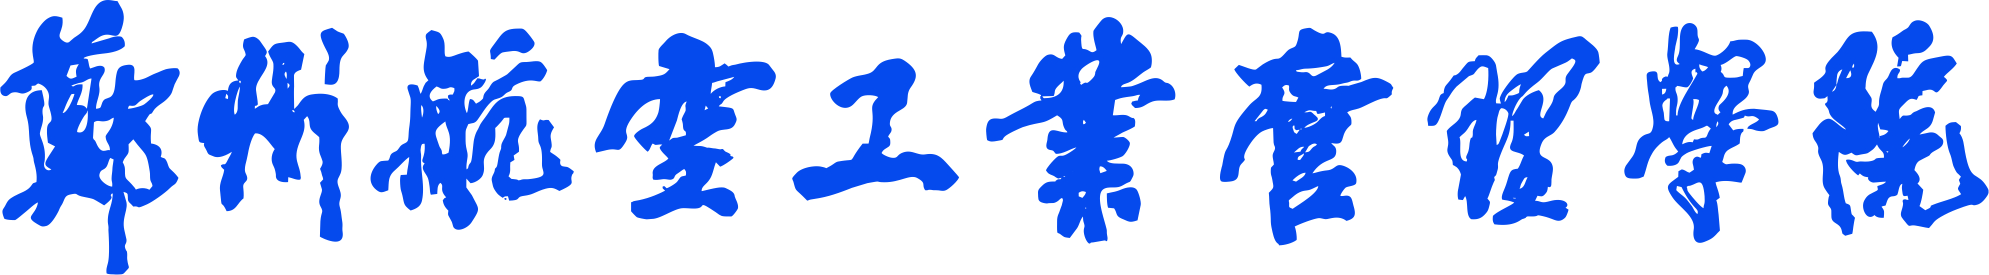 鄭州航空工業管理學院